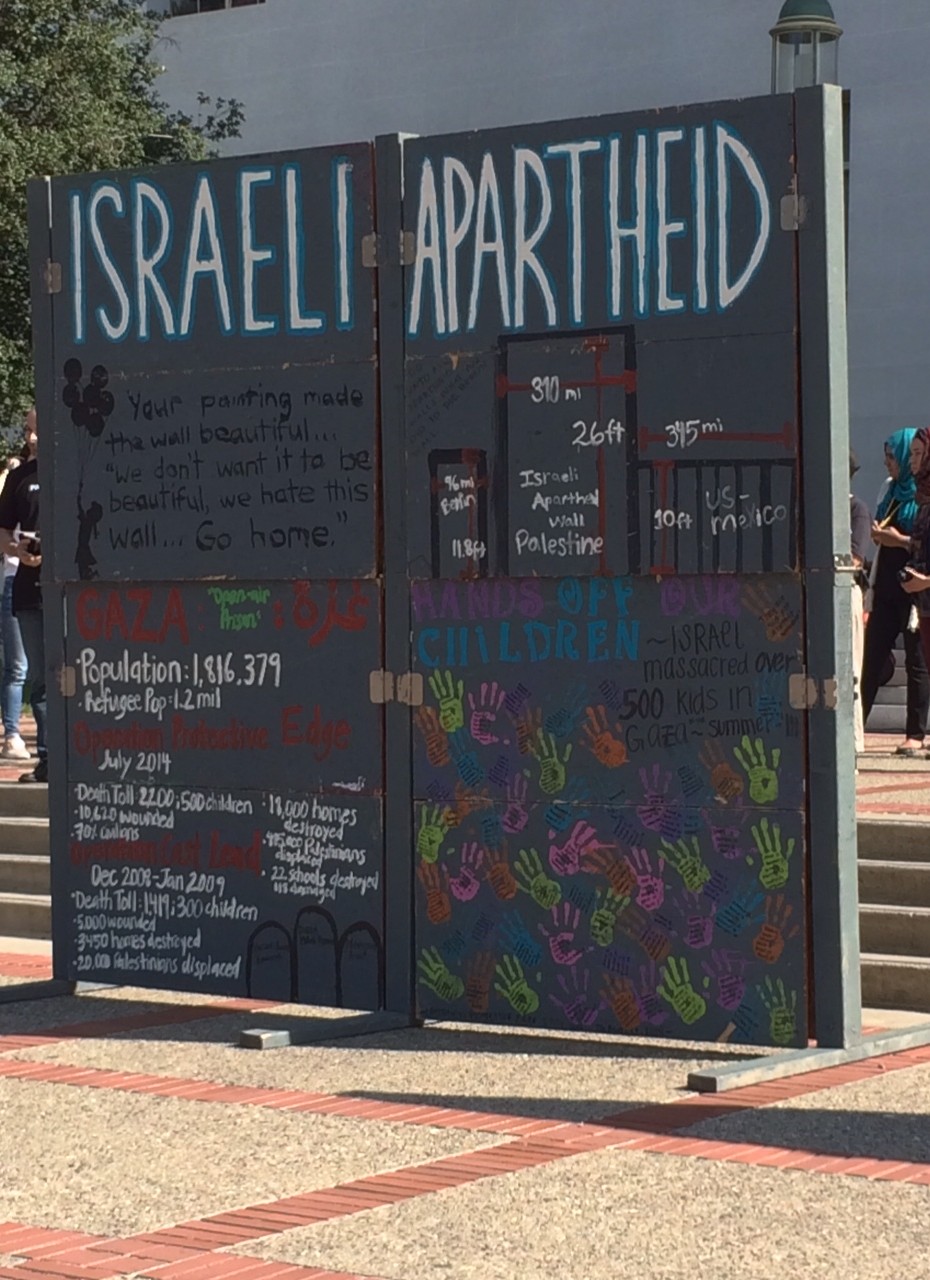 ISRAELI APARTHEID
Your painting made
the wall beautiful...
"we don't want it to be
beautiful, we hate this
wall... Go home."
310 mi
26ft
Israeli
Apartheid
Wall
Palestine
96mi
Berlin
11.8ft
345mi
10ft
US-
mexico
GAZA: "Open-air
Prison" : غزة
·Population: 1,816,379
·Refugee Pop: 1.2 mil
Operation Protective Edge
July 2014
·Death Toll: 2200; 500 children
·10,620 wounded
·70% civilians
·18,000 homes
destroyed
Palestinians
displaced
·22 schools destroyed
118 damaged
Operation Cast Lead
Dec 2008-Jan 2009
·Death Toll: 1,419; 300 children
·5,000 wounded
·3450 homes destroyed
·20,000 Palestinians displaced
HANDS OFF OUR
CHILDREN
~ISRAEL
massacred over
500 kids in
Gaza~summer